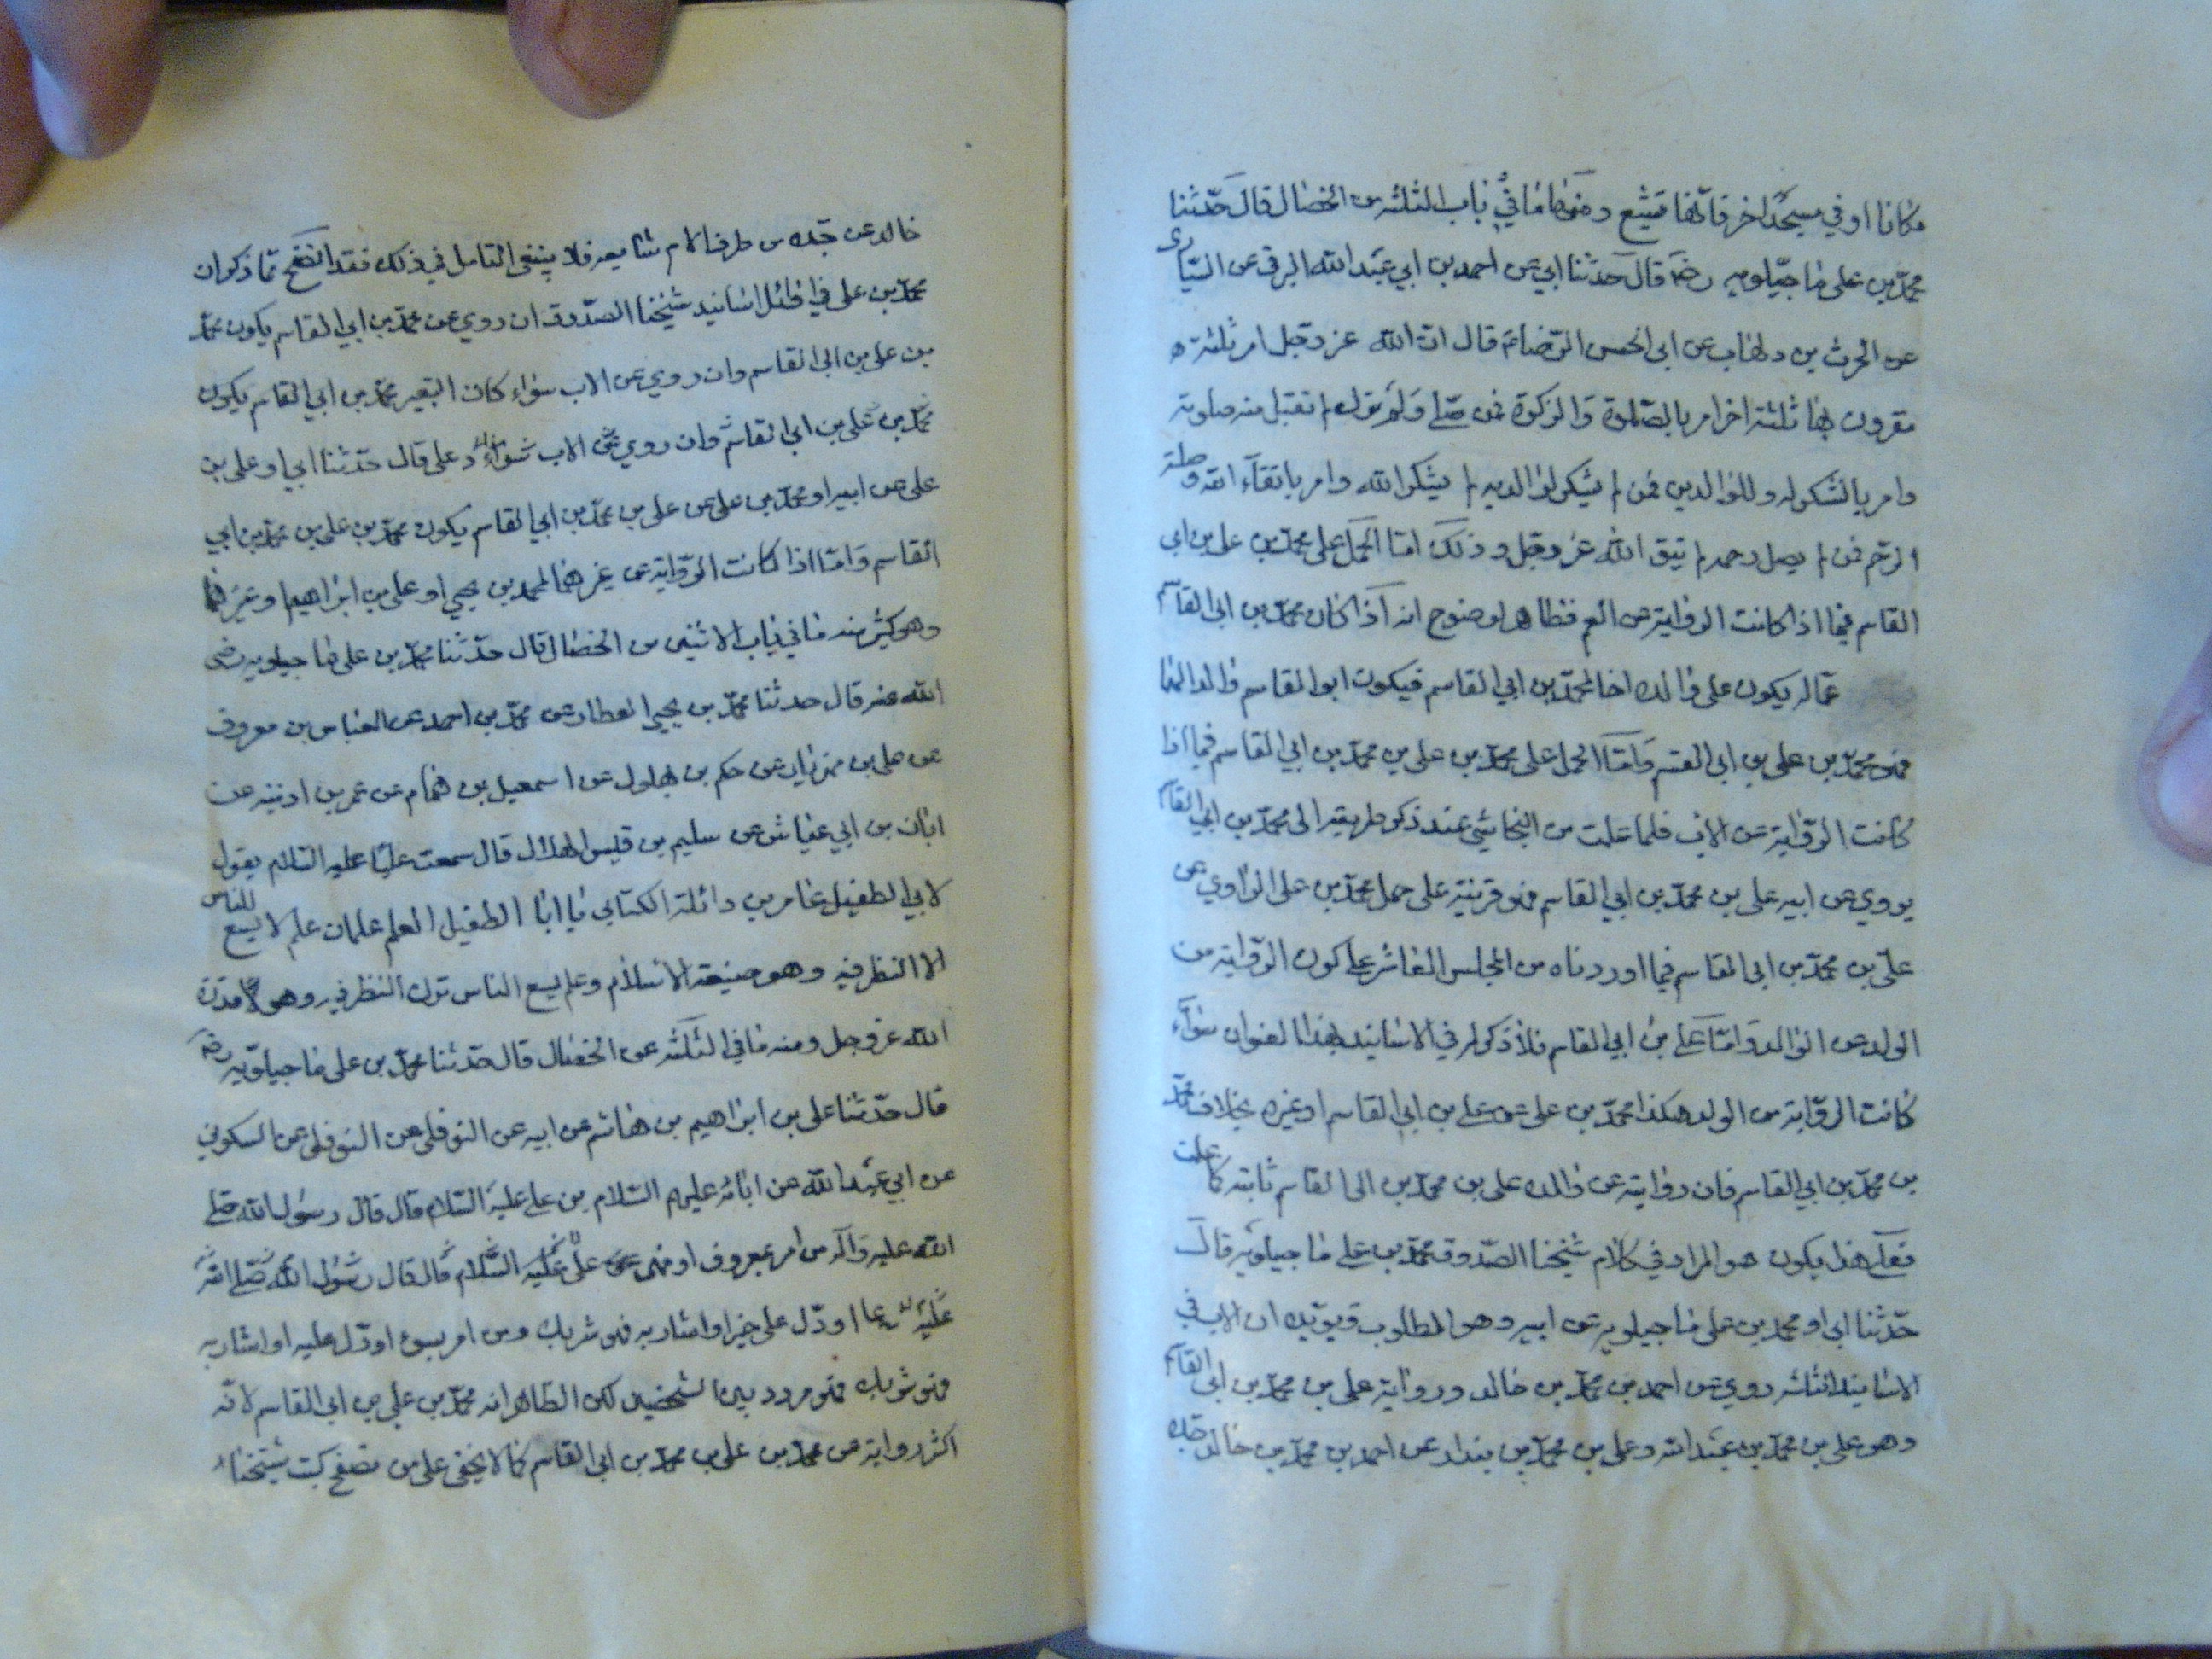 مكانا او في مسجد اخر فانها تشيع ومنها ما في باب الثلثة من الخصال قال حدثنا
محمد بن علي ماجيلويه رضه قال حدثنا ابي عن احمد بن ابي عبد الله البرقي عن السياري
عن الحرث بن دلهاب عن ابي الحسن الرضا عم قال ان الله عز وجل امر بثلثة
مقرون بها ثلثة اخرا امر بالصلوة والزكوة فمن صلى ولم يزك لم تقبل منه صلوته
وامر بالشكر له وللوالدين فمن لم يشكر لوالديه لم يشكر الله وامر باتقاء الله وصلة
الرحم فمن لم يصل رحمه لم يتق الله عز وجل وذلك اما الحمل على محمد بن علي بن ابي
القاسم فيما اذا كانت الرواية عن العم فظاهر لوضوح انه اذا كان محمد بن ابي القاسم
عما له يكون علي والده اخا لمحمد بن ابي القاسم فيكون ابو القاسم والد الهما
فهو محمد بن علي بن ابي القسم واما الحمل على محمد بن علي بن محمد بن ابي القاسم فيما اذا
كانت الرواية عن الاب فلما علمت من النجاشي عند ذكر طريقه الى محمد بن ابي القاسم
يروي عن ابيه علي بن محمد بن ابي القاسم فهو قرينة على حمل محمد بن علي الراوي عن
علي بن محمد بن ابي القاسم فيما اوردناه من المجلس العاشر على كون الرواية من
الولد عن الوالد واما علي بن ابي القاسم فلا ذكر له في الاسانيد بهذا العنوان سواء
كانت الرواية من الولد هكذا محمد بن علي عن علي بن ابي القاسم او غيره بخلاف محمد
بن محمد بن ابي القاسم فان روايته عن والده علي بن محمد بن ابي القاسم ثابتة كما علمت
فعلى هذا يكون هو المراد في كلام شيخنا الصدوق محمد بن علي ماجيلويه قال
حدثنا ابي او محمد بن علي ماجيلويه عن ابيه وهو المطلوب ويؤيده ان الاب في
الاسانيد الثلثة روي عن احمد بن محمد بن خالد ورواية علي بن محمد بن ابي القاسم
وهو علي بن محمد بن عبد الله وعلي بن محمد بن بندار عن احمد بن محمد بن خالد جده
خالد عن جده من طرف الام شايعه فلا ينبغي التامل في ذلك فقد اتضح مما ذكر ان
محمد بن علي في اوائل اسانيد شيخنا الصدوق ان روي عن محمد بن ابي القاسم يكون محمد
بن علي بن ابي القاسم وان روي عن الاب سواء كان التعبير محمد بن ابي القاسم يكون
محمد بن علي بن ابي القاسم وان روي عن الاب سواء علي قال حدثنا ابي او علي بن
علي عن ابيه او محمد بن علي عن علي بن محمد بن ابي القاسم يكون محمد بن علي بن محمد بن ابي
القاسم واما اذا كانت الرواية عن غيرهما لمحمد بن يحيى او علي بن ابراهيم او غيرهما
وهو كثير منه ما في باب الاثنين من الخصال قال حدثنا محمد بن علي ماجيلويه رضى
الله عنه قال حدثنا محمد بن يحيى العطار عن محمد بن احمد عن العباس بن معروف
عن علي بن مهزيار عن حكم بن بهلول عن اسمعيل بن همام عن عمر بن اذينه عن
ابان بن ابي عياش عن سليم بن قيس الهلال قال سمعت عليا عليه السلام يقول
لابي الطفيل عامر بن واثلة الكناني يا ابا الطفيل العلم علمان علم لا يسع للناس
الا النظر فيه وهو صبغة الاسلام وعلم يسع الناس ترك النظر فيه وهو قدرة
الله عز وجل ومنه ما في الثلثة عن الخصال قال حدثنا محمد بن علي ماجيلويه رضه
قال حدثنا علي بن ابراهيم بن هاشم عن ابيه عن النوفلي عن النوفلي عن السكوني
عن ابي عبد الله عن ابائه عليهم السلام بن علي عليه السلام قال قال رسول الله صلى
الله عليه واله من امر بمعروف او نهى عن علي عليه السلام قال قال رسول الله صلى الله
عليه اودل على خير او اشار به فهو شريك ومن امر بسوء اودل عليه او اشار به
فهو شريك فهو مردد بين الشخصين لكن الظاهر انه محمد بن علي بن ابي القاسم لانه
اكثر رواية عن محمد بن علي بن محمد بن ابي القاسم كما لا يخفى على من تصفح كتب شيخنا